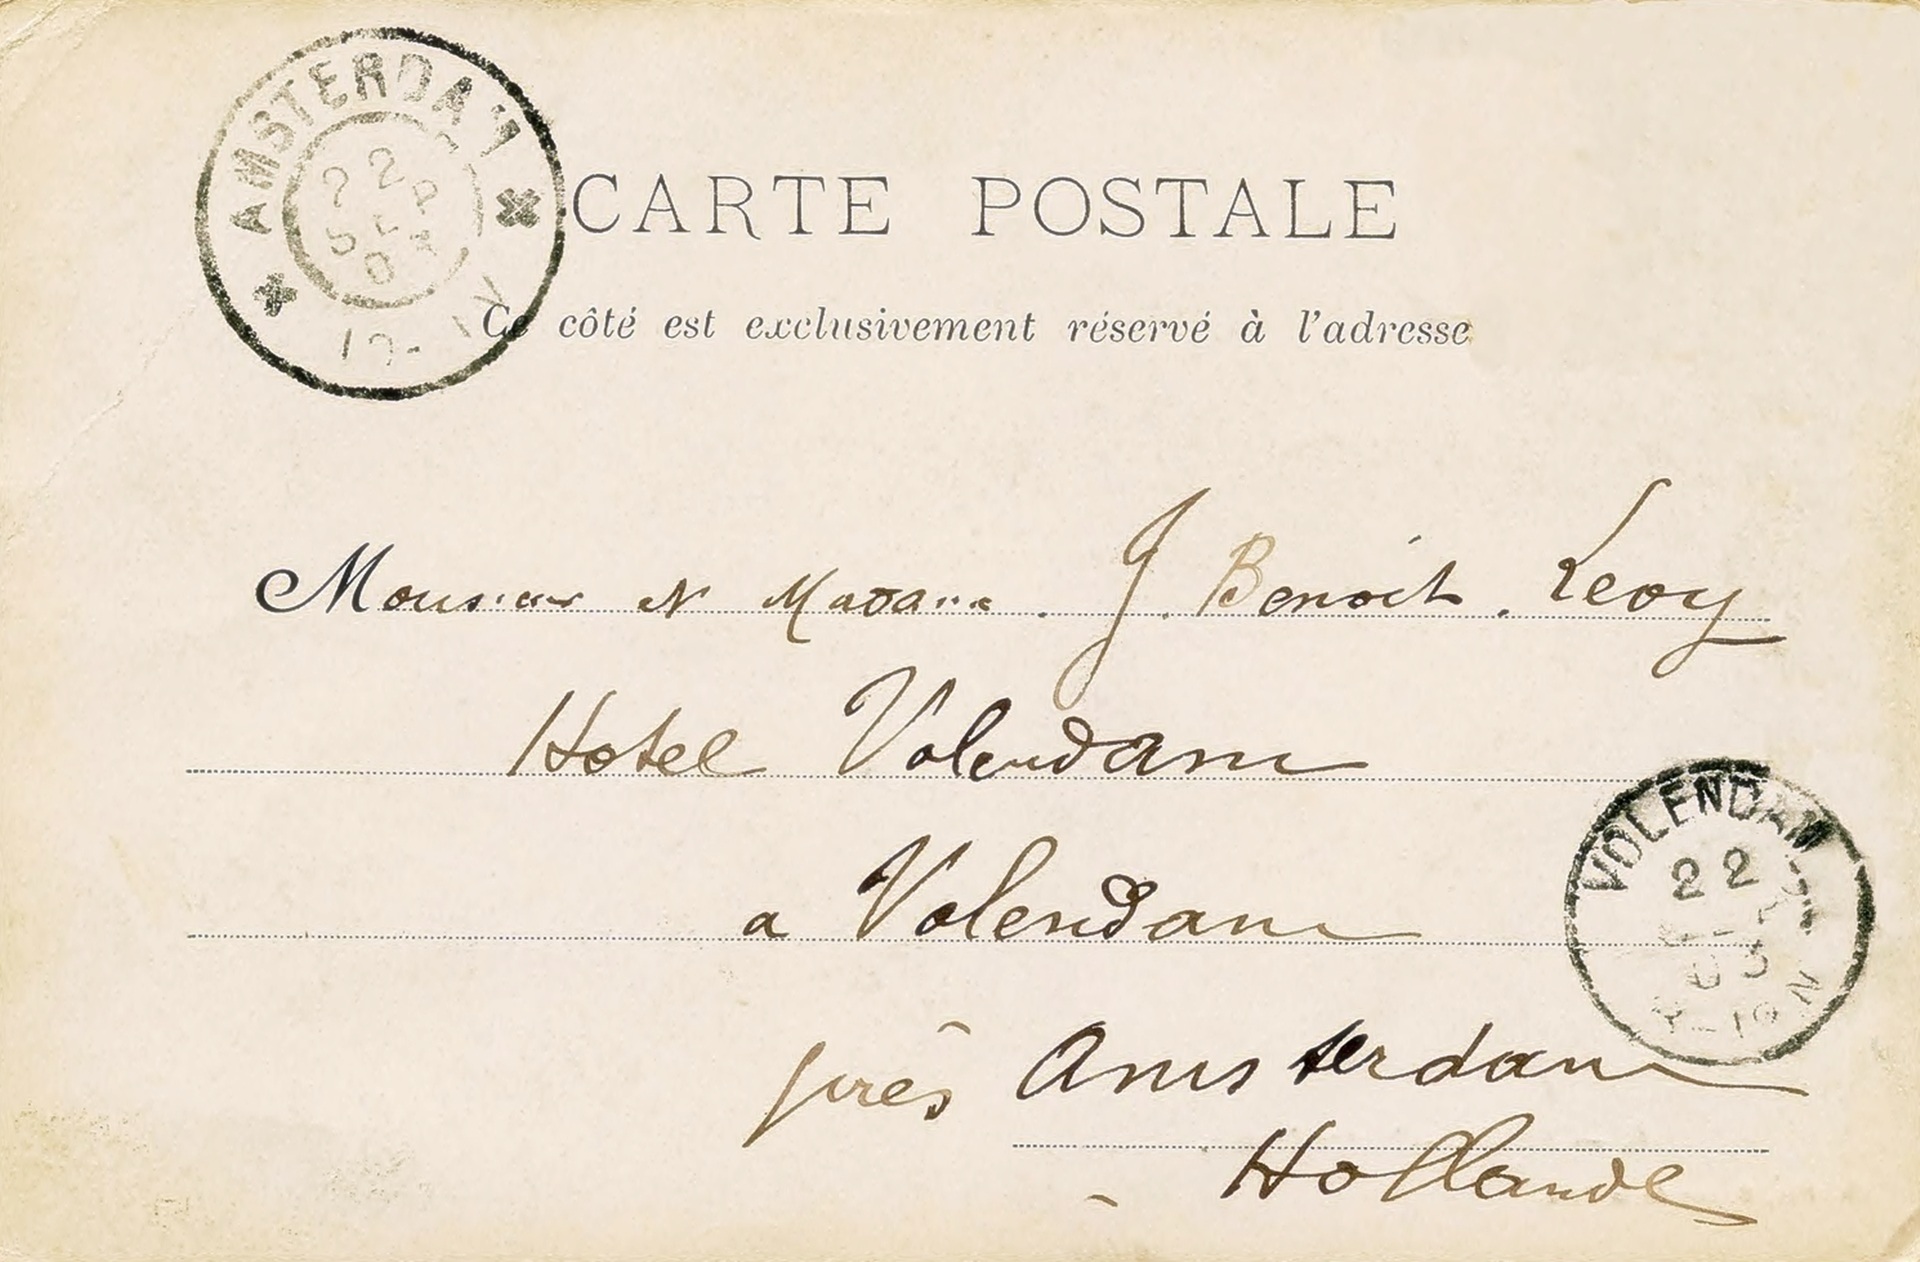 AMSTERDAM
22
SEP
03
CARTE POSTALE
Ce côté est exclusivement réservé à l'adresse
Monsieur et Madame . J. Benoit . Levy
Hotel Volendam
VOLENDAM
22
03
a Volendam
près Amsterdam
Hollande